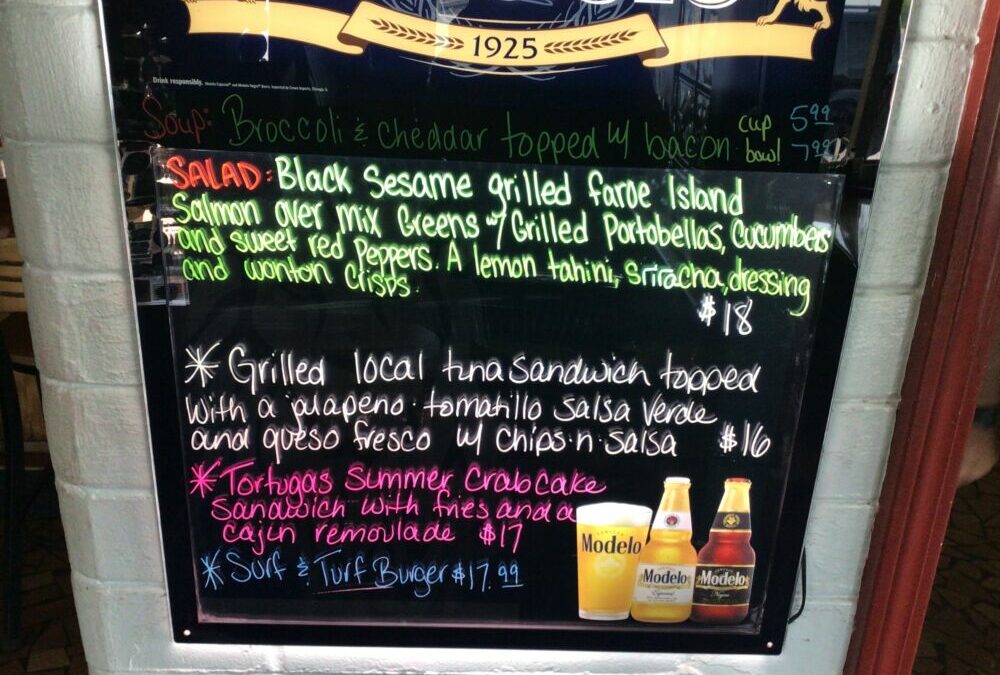 1925
Drink responsibly.
Soup: Broccoli & cheddar topped w/ bacon cup 5.99
bowl 7.99
SALAD: Black Sesame grilled faroe Island
Salmon over mix Greens w/ Grilled Portobellos, Cucumbers
and sweet red Peppers. A lemon tahini, sriracha, dressing
and wonton Crisps.
$18
* Grilled local tuna Sandwich topped
with a jalapeno tomatillo salsa Verde
and queso fresco w/ chips n salsa $16
* Tortugas Summer Crabcake
Sandwich with fries and a
cajin remoulade $17
* Surf & Turf Burger $17.99
Modelo
Modelo
Especial
Modelo
Negra